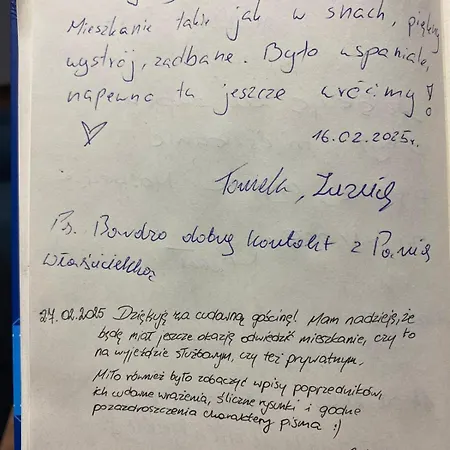 Mieszkanie takie jak w snach, piękny
wystrój, zadbane. Było wspaniale,
napewno tu jeszcze wrócimy!
16.02.2025r.
Tomek,
Ps. Bardzo dobry kontakt z Panią
Właścicielką
27.02.2025 Dziękuję za cudowną gościnę! Mam nadzieję, że
będę miał jeszcze okazję odwiedzić mieszkanie, czy to
na wyjeździe służbowym, czy też prywatnym.
Miło również było zobaczyć wpisy poprzedników,
ich cudowne wrażenia, śliczne rysunki i godne
pozazdroszczenia charaktery pisma :)